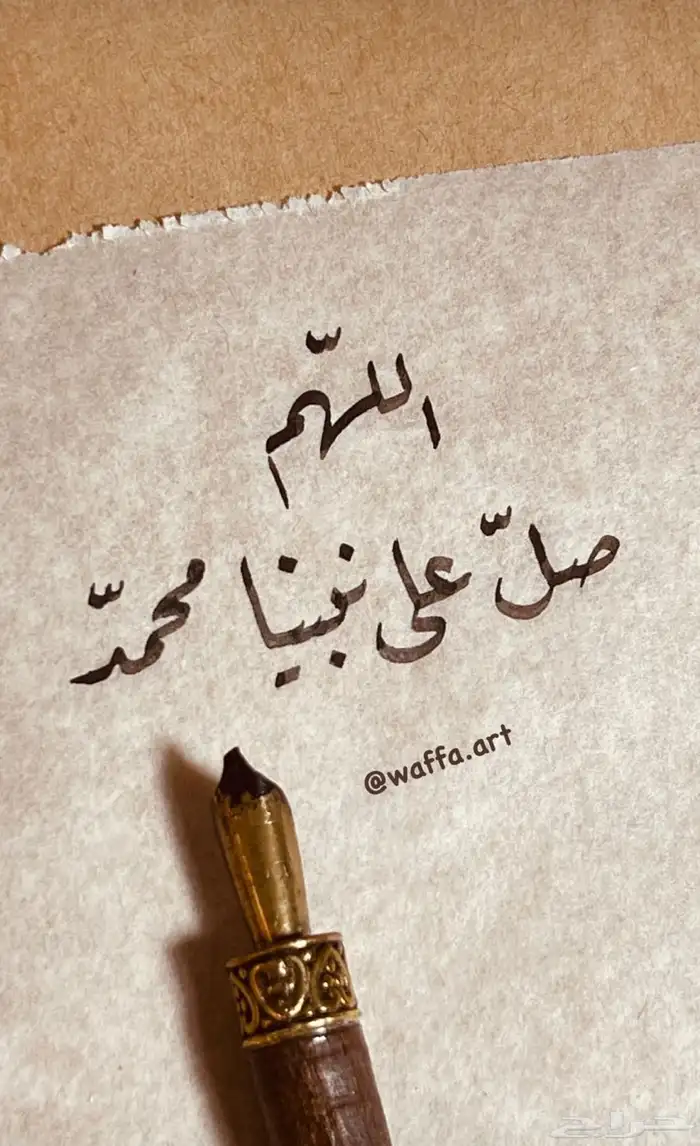 اللهّم
صلّ على نبينا محمدّ
@waffa.art
حراج